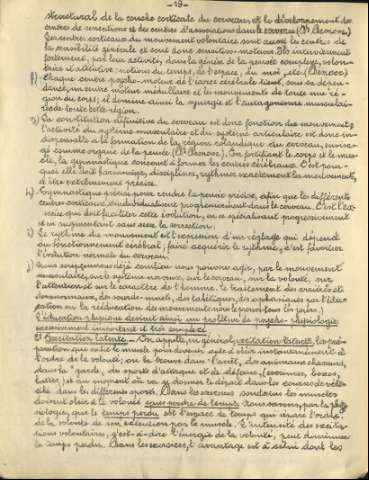 - 19 -
structural de la couche corticale du cerveau, et le développement des
centres de sensations et les centres d'association dans le cerveau
Les centres corticaux du mouvement volontaire sont aussi les centres de
la sensibilité générale et sont donc sensitivo-moteurs. Ils interviennent
fortement, par leur activité, dans la genèse de la pensée complexe, volon-
taire et affective: notions du temps, de l'espace, du moi, etc.
1) Chaque centre psycho-moteur de l'écorce cérébrale tient, sous sa dépen-
dance, un centre moteur médullaire et les mouvements de toute une ré-
gion du corps; il domine ainsi la synergie et l'antagonisme musculai-
re de toute cette région.
2) La constitution définitive du cerveau est donc fonction des mouvements;
l'activité du système musculaire et du système articulaire est donc in-
dispensable à la formation de la région rolandique du cerveau, envisa-
gé comme organe de la pensée. Or, profilant le corps et le mus-
cle, la gymnastique concourt à former les centres cérébraux. C'est pour-
quoi elle doit harmoniser, discipliner, rythmer exactement les mouvements,
à être extrêmement précise.
4) Gymnastique précise, pour rendre la pensée précise, afin que les différents
centres corticaux s'individualisent progressivement dans le cerveau. C'est l'exer-
cice qui doit faciliter cette évolution, en se spécialisant progressivement
et en augmentant sans cesse la correction.
Le rythme du mouvement est l'expression d'un réglage qui dépend
du fonctionnement cérébral; faire acquérir le rythme, c'est favoriser
l'évolution normale du cerveau.
Nous comprenons déjà combien nous pouvons agir, par le mouvement
musculaire, sur le système nerveux, sur le cerveau, sur la volonté, sur
l'attention et sur le caractère de l'homme. Le traitement des arriérés et
des anormaux, des sourds-muets, des tabétiques, des aphasiques par l'édu-
cation ou la rééducation des mouvements nous le prouve tous les jours.
L'éducation physique devient ainsi un problème de psycho-physiologie
excessivement important et très complexe.
Excitation latente. - On appelle, en général, excitation latente, la pré-
paration que subit le muscle pour devenir apte à obéir instantanément à
l'ordre de la volonté; on la trouve dans l'arrêt, des animaux chasseurs,
dans la "garde", des sports d'attaque et de défense, (escrimes, boxes,
luttes), et au moment où va se donner le départ dans les courses de vélo-
cité dans les différents sports. Dans les exercices soudains les muscles
doivent obéir à la volonté sans perte de temps. Nous savons, par la phy-
siologie, que le temps perdu est l'espace de temps qui sépare l'ordre
de la volonté de son exécution par le muscle. L'intensité des excita-
tions volontaires, c'est-à-dire l'énergie de la volonté, peut diminuer
le temps perdu. Dans les exercices, l'avantage est à celui dont les